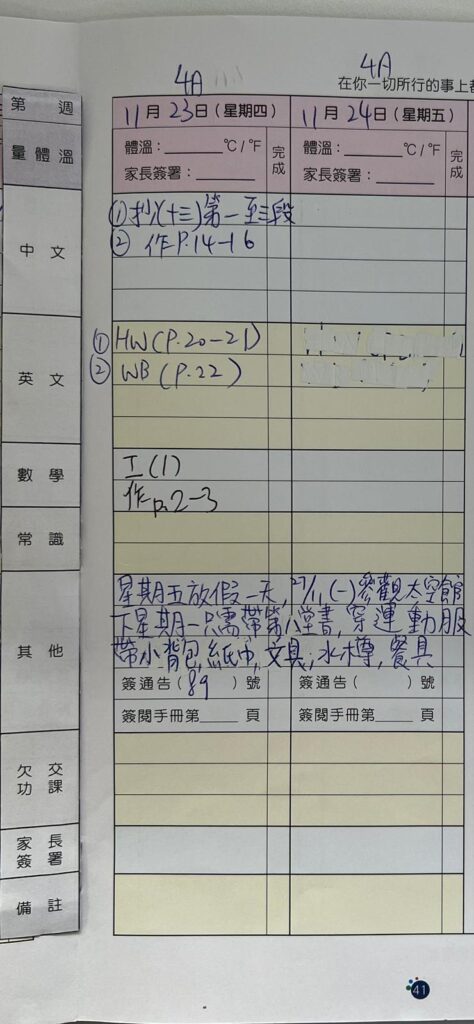 4A
4A
在你一切所行的事上都
第 週
11月23日(星期四)
11月24日(星期五)
量體溫
體溫:______°C/°F
家長簽署:______
完成
體溫:______°C/°F
家長簽署:______
完成
中文
①抄(十三)第一至三段
② 作P.14-16
英文
① HW(P.20-21)
② WB(P.22)
數學
工(1)
作p.2-3
常識
其他
星期五放假一天,27/11(一)參觀太空館
下星期一只需帶第八堂書,穿運動服
帶小背包,紙巾,文具,水樽,餐具
簽通告(89)號
簽通告( )號
簽閱手冊第____頁
簽閱手冊第____頁
欠交功課
家長簽署
備註
41